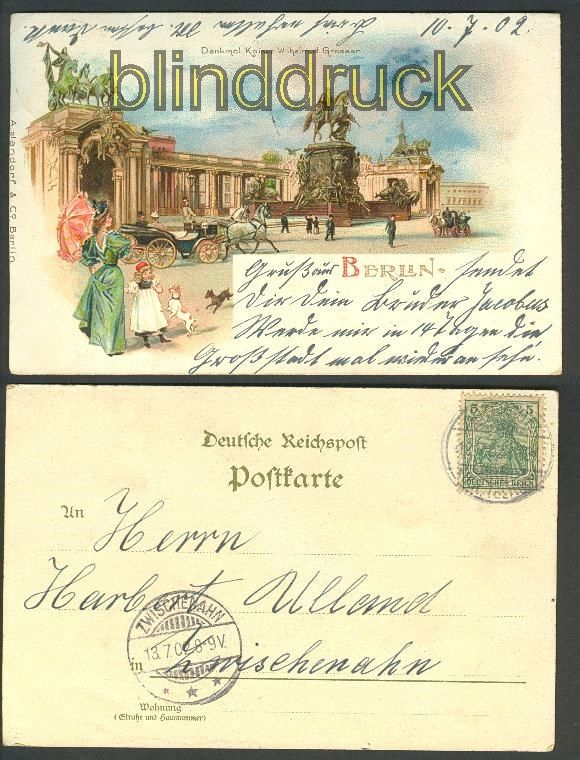 10. 7. 02.
Denkmal Kaiser Wilhelm d. Grossen
blinddruck
Gruß aus BERLIN. sendet
Dir Dein Bruder Jacobus
Werde mir in 14 Tagen die
Großstadt mal wieder an sehn.
& Co. Berlin.
5 5
DEUTSCHES REICH
Deutsche Reichspost
Postkarte
An Herrn
Harbert Ulland
ZWISCHENAHN
13.7.02. 8-9V.
in Zwischenahn
Wohnung
(Straße und Hausnummer)